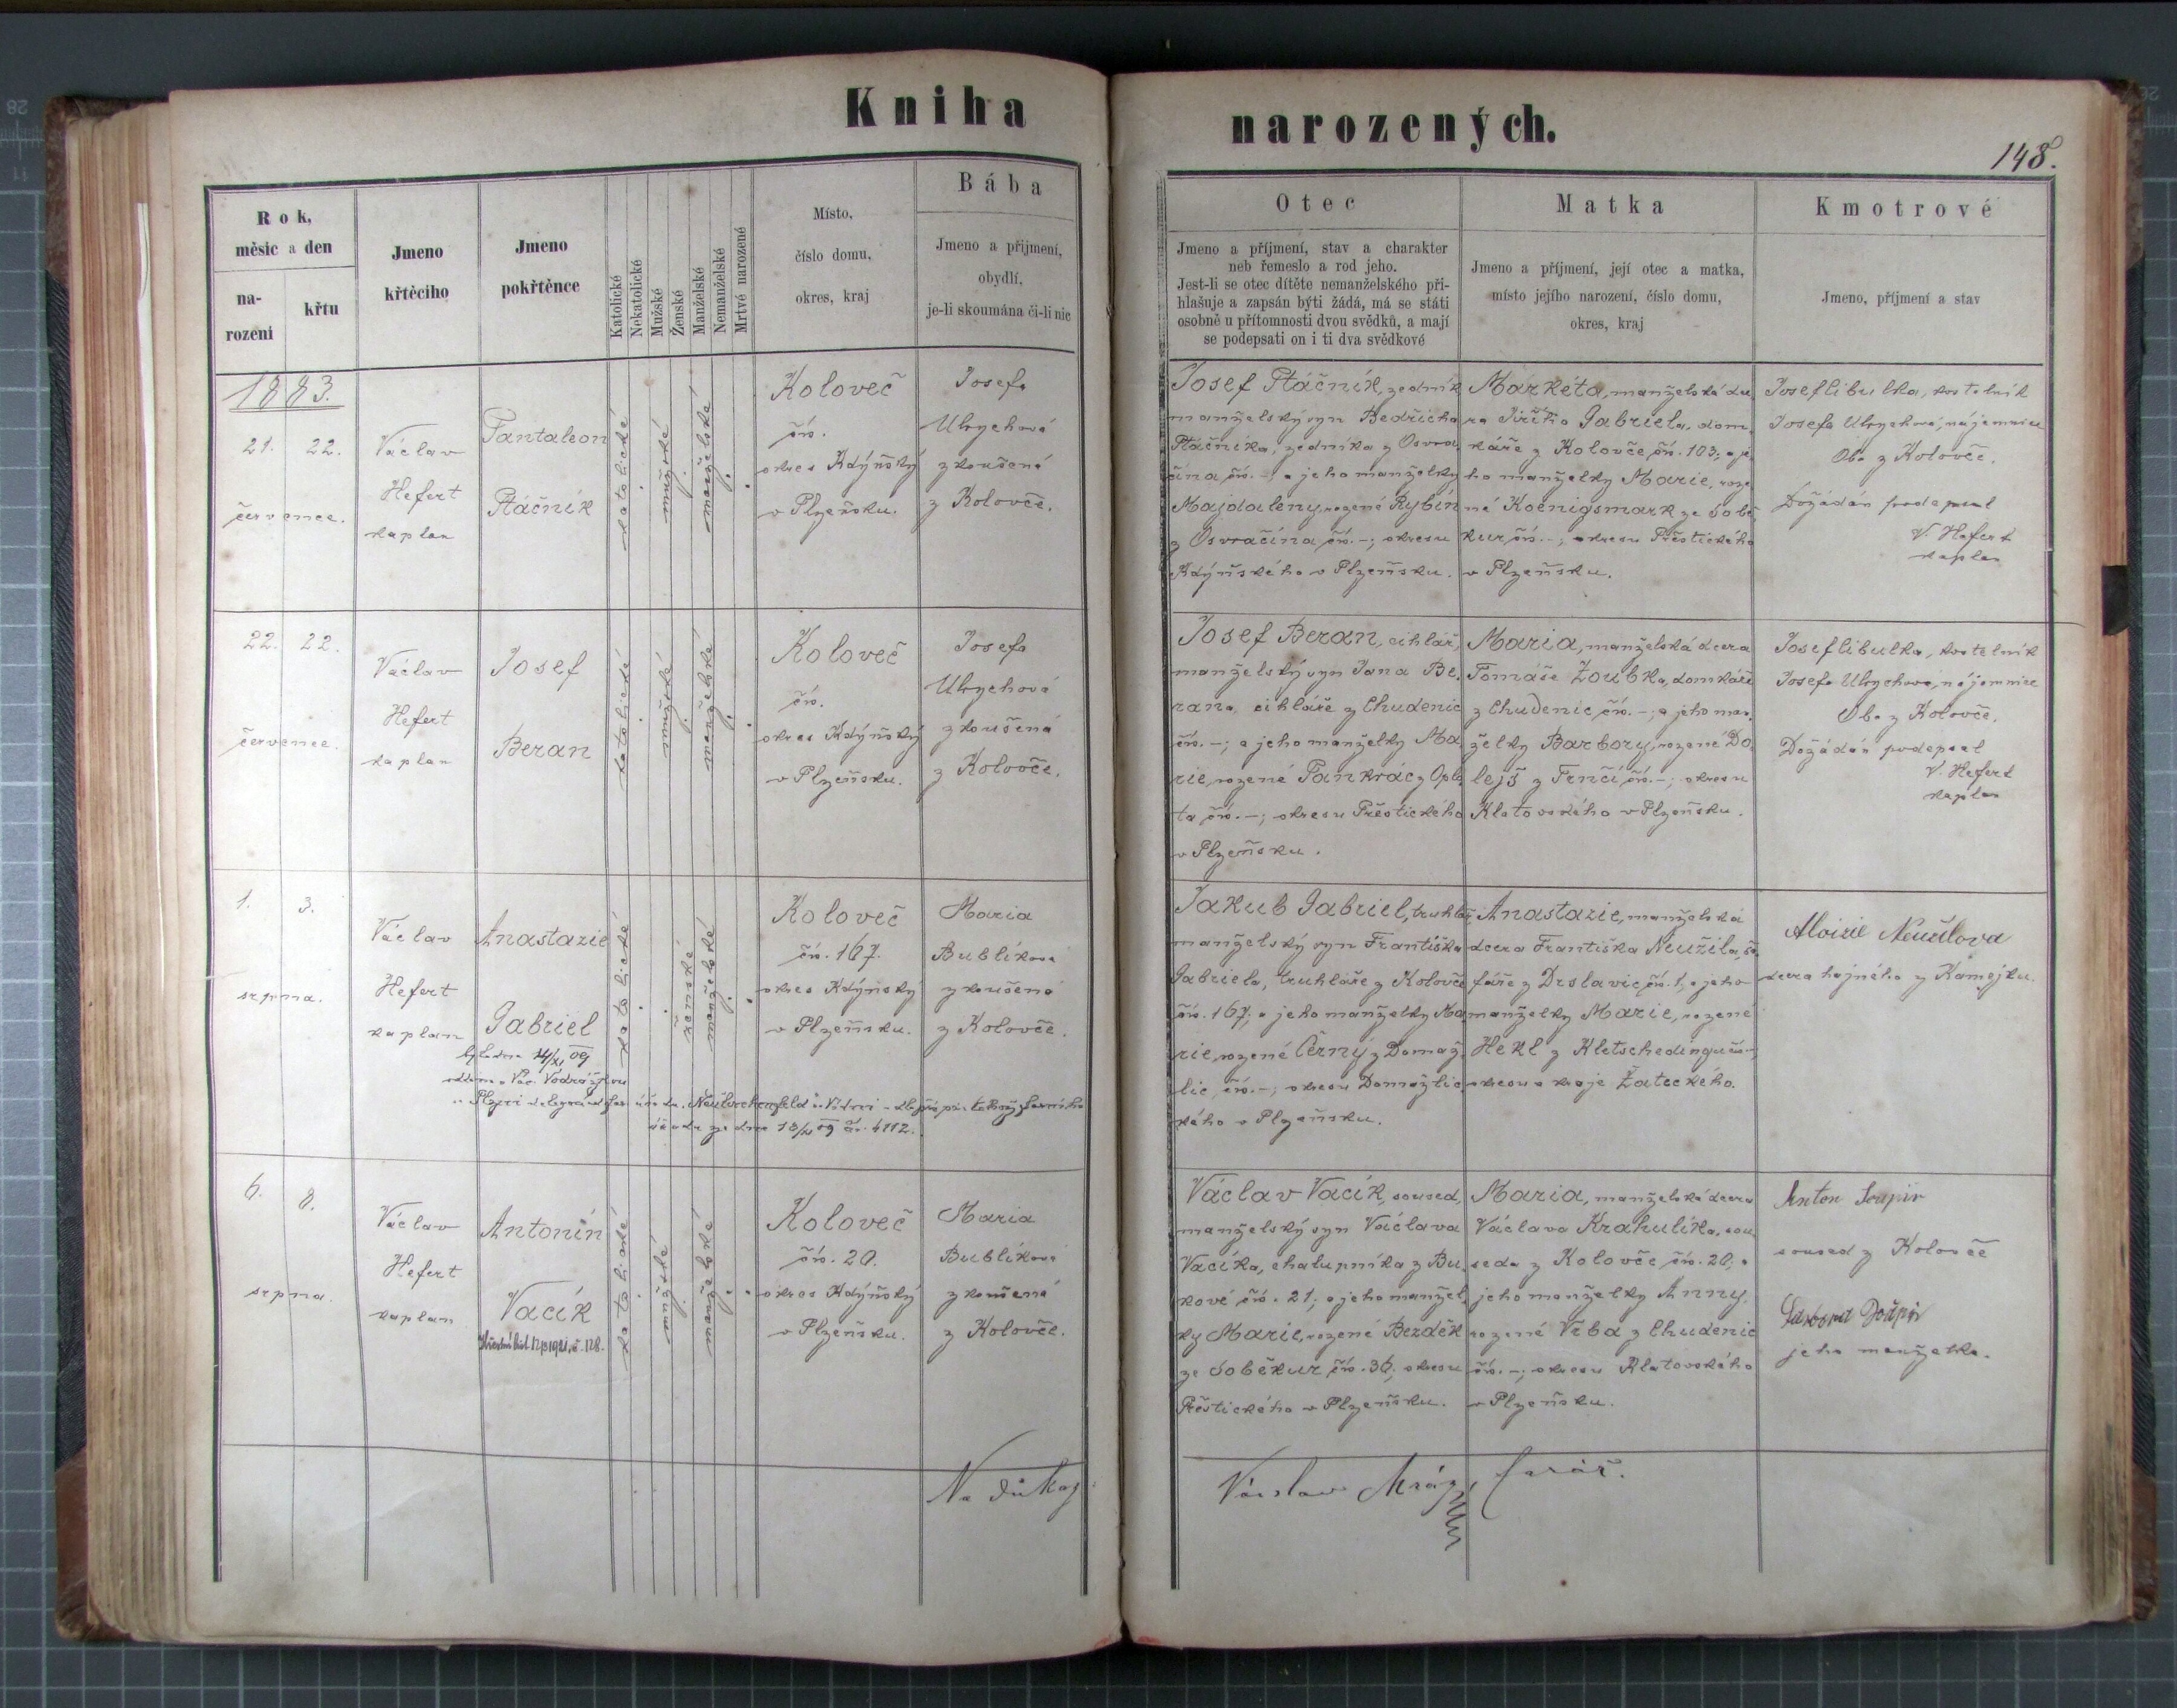 Kniha
narozených.
148.
Rok,
měsíc a den
na-
rození
křtu
Jmeno
křtěcího
Jmeno
pokřtěnce
Katolické
Nekatolické
Mužské
Ženské
Manželské
Nemanželské
Mrtvé narozené
Místo,
číslo domu,
okres, kraj
Bába
Jmeno a přijmení,
obydlí,
je-li skoumána či-li nic
Otec
Jmeno a příjmení, stav a charakter
neb řemeslo a rod jeho.
Jest-li se otec dítěte nemanželského při-
hlašuje a zapsán býti žádá, má se státi
osobně u přítomnosti dvou svědků, a mají
se podepsati on i ti dva svědkové
Matka
Jmeno a příjmení, její otec a matka,
místo jejího narození, číslo domu,
okres, kraj
Kmotrové
Jmeno, příjmení a stav
1883.
21. 22.
července.
Václav
Hefert
kaplan
Pantaleon
Ptáčník
katolické
mužské
manželské
Koloveč
čís.
okres Kdýňský
v Plzeňsku.
Josefa
Ulrychová
zkoušená
z Kolovče.
Josef Ptáčník, zedník
manželský syn Bedřicha
Ptáčníka, zedníka z Osvra
čína čís. -; a jeho manželky
Majdaleny, rozené Rybín
z Osvračína čís. -; okresu
Kdýňského v Plzeňsku.
Markéta, manželská dce
ra Jiřího Gabriela, dom
káře z Kolovče, čís. 103; a je
ho manželky Marie, roze
né Koenigsmark ze Sobě
kur, čís. -; okresu Přeštického
v Plzeňsku.
Josef Cibulka, kostelník
Josefa Ulrychova, nájemnice
Oba z Kolovče.
Dožádán podepsal
V. Hefert
kaplan
22. 22.
července.
Václav
Hefert
kaplan
Josef
Beran
katolické
mužské
manželské
Koloveč
čís.
okres Kdýňský
v Plzeňsku.
Josefa
Ulrychová
zkoušená
z Kolovče.
Josef Beran, cihlář,
manželský syn Jana Be
rana, cihláře z Chudenic
čís. -; a jeho manželky Ma
rie, rozené Pankrác z Oplo
ta čís. -; okresu Přeštického
v Plzeňsku.
Maria, manželská dcera
Tomáše Zoubka, domkáře
z Chudenic čís. -; a jeho man
želky Barbory, rozené Do
lejš z Trnčí čís. -; okresu
Klatovského v Plzeňsku.
Josef Cibulka, kostelník
Josefa Ulrychova, nájemnice
Oba z Kolovče.
Dožádán podepsal
V. Hefert
kaplan
1. 3.
srpna.
Václav
Hefert
kaplan
Anastazie
Gabriel
katolické
ženské
manželské
Koloveč
čís. 167.
okres Kdýňský
v Plzeňsku.
Maria
Bublíkova
zkoušená
z Kolovče.
Jakub Gabriel, truhlář
manželský syn Františka
Gabriela, truhláře z Kolovče
čís. 167; a jeho manželky Ma
rie, rozené Černý z Domaž
lic, čís. -; okresu Domažlic
kého v Plzeňsku.
Anastazie, manželská
dcera Františka Neužila, ša
fáře z Drslavic, čís. 1; a jeho
manželky Marie, rozené
Hekl z Kletschedingu čís. -;
okresu a kraje Žateckého.
Aloisie Neužilova
dcera hajného z Kamejku.
6. 8.
srpna.
Václav
Hefert
kaplan
Antonín
Vacík
katolické
mužské
manželské
Koloveč
čís. 20.
okres Kdýňský
v Plzeňsku.
Maria
Bublíkova
zkoušená
z Kolovče.
Václav Vacík, soused,
manželský syn Václava
Vacíka, chalupníka z Bu
kové čís. 21; a jeho manžel
ky Marie, rozené Bezděk
ze Soběkur čís. 36; okresu
Přeštického v Plzeňsku.
Maria, manželská dcera
Václava Krahulíka, sou
seda z Kolovče čís. 20; a
jeho manželky Anny,
rozené Vrba z Chudenic
čís. -; okresu Klatovského
v Plzeňsku.
Anton
soused z Kolovče
jeho manželka.
Na důkaz
Václav Mráz
farář.